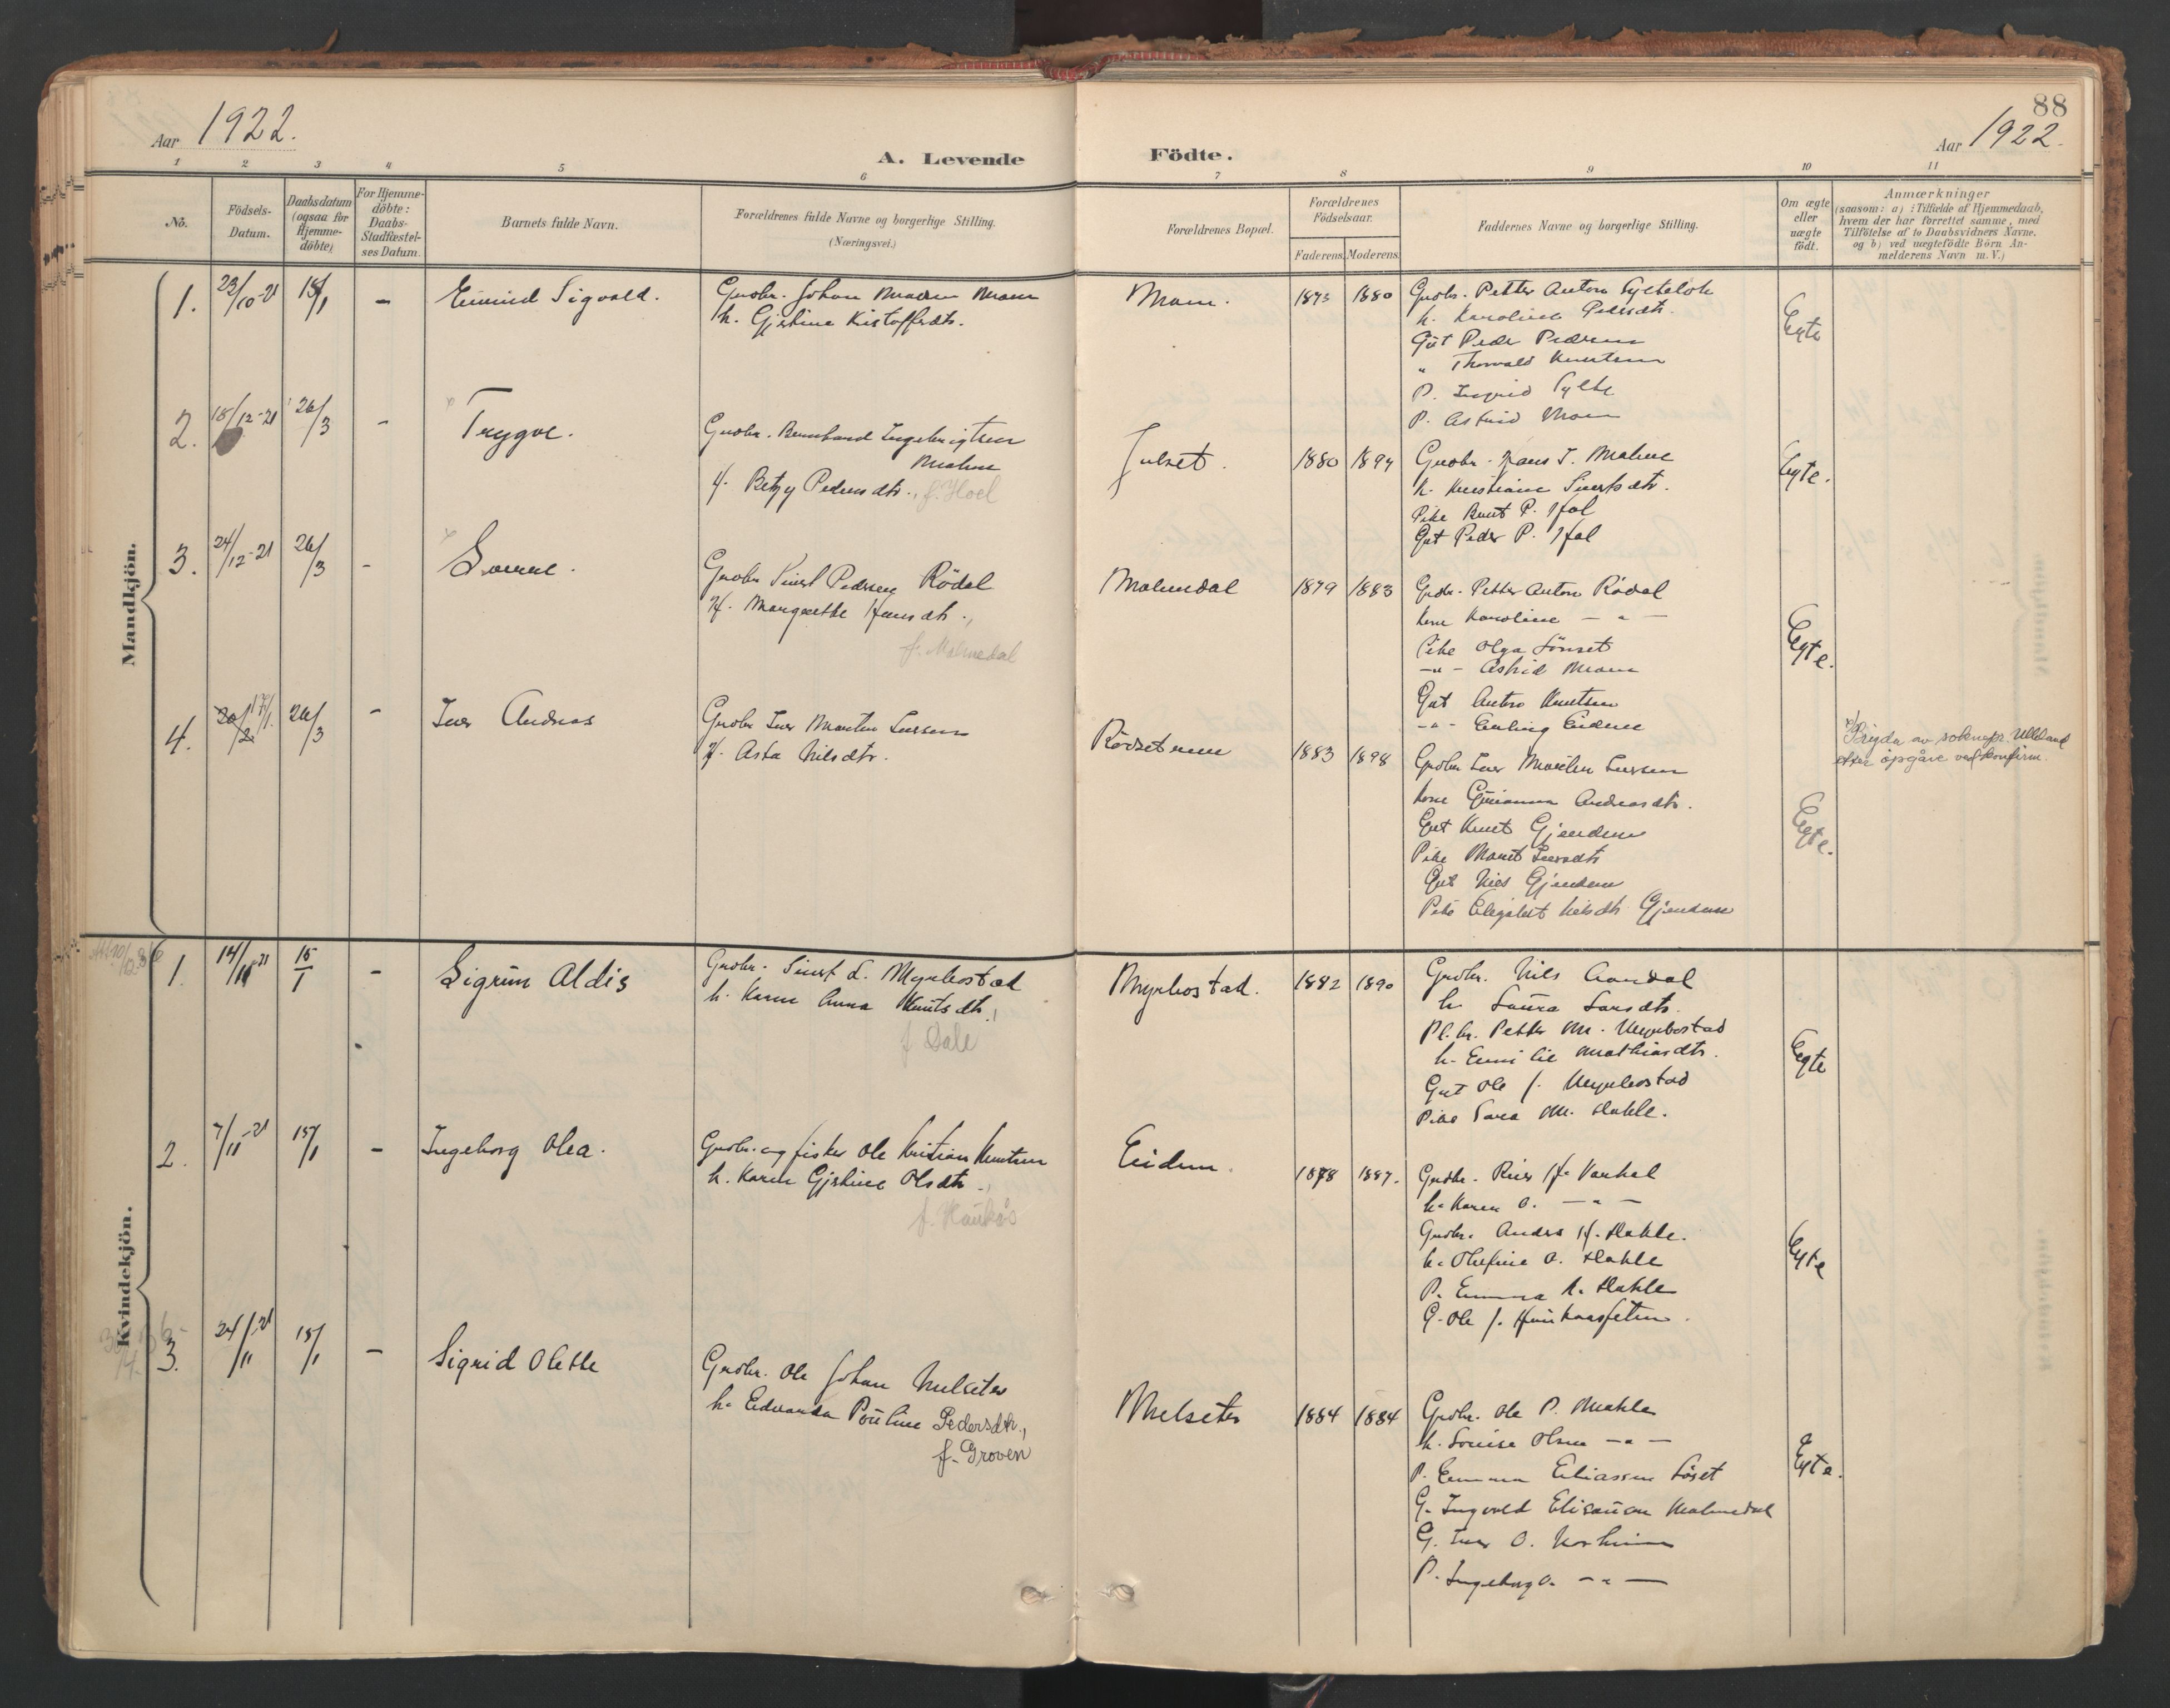 88
Aar 1922.
A. Levende Födte.
Aar 1922.
1 2 3 4 5 6 7 8 9 10 11
No.
Födsels-
Datum.
Daabsdatum
(ogsaa for
Hjemme-
döbte).
For Hjemme-
döbte:
Daabs-
Stadfæstel-
ses Datum.
Barnets fulde Navn.
Forældrenes fulde Navne og borgerlige Stilling.
(Næringsvei.)
Forældrenes Bopæl.
Forældrenes
Födselsaar.
Faderens. Moderens.
Faddernes Navne og borgerlige Stilling.
Om ægte
eller
uægte
födt.
Anmærkninger
(saasom: a) : Tilfælde af Hjemmedaab,
hvem der har forrettet samme, med
Tilföielse af to Daabsvidners Navne.
og b) ved uægtefödte Börn An-
melderens Navn m. V.)
Mandkjön.
1. 23/10-21 15/1 - Sigvald.
Grobr. Johan
h. Gjertine
1873 1880
Grobr. Petter Anton
h. Karoline Pedersdtr.
Gut Peder Pedersen
" Thorvald Knutsen
P. Ingrid Sylte
P. Astrid
Egte
2. 18/12-21 26/3 - Trygve.
Grobr. Bernhard Ingebrigtsen
Malme
H. Betzy Pedersdtr., f. Hoel
Julset. 1880 1894
Grobr. Hans J. Malme
h. Kristiane Sivertsdtr.
Pike Berit P.
Gut Peder P.
Egte.
3. 24/12-21 26/3 -
Grobr Sivert Pedersen Rödal
H. Margrethe Hansdtr.,
f. Malmedal
Malmedal 1879 1883
Grobr. Petter Anton Rödal
kone Karoline - " -
Pike Olga
-"- Astrid
Gut Anton Knutsen
-"- Erling Eidem
Egte.
4. 17/1. 26/3 - Iver Andreas
Grobr Iver Martin Iversen
H. Asta Nilsdtr.
1883 1898
Grobr Iver Martin Iversen
kone Andreasdtr.
Gut Knut Gjendem
Pike Marit Iversdtr
Gut Nils Gjendem
Pike Nilsdtr Gjendem
Egte.
x/ av soknepr. Ulleland
etter opgåve ved konfirm.
Kvindekjön.
1. 14/11 21 15/1 - Sigrun Aldis
Grobr. Sivert L. Myrbostad
h. Karen Anna Knutsdtr.,
f Dale
Myrbostad. 1882 1890
Grobr. Nils Aandal
h Laura Larsdtr.
Pl.br. Petter M. Myrbostad
h. Emilie Mathiasdtr.
Gut Ole J. Myrbostad
Pike Sara M. Hahle.
Egte
2. 7/11-21 15/1 - Ingeborg Olea.
Grobr. og fisker Ole Kristian Knutsen
h. Karen Gjertine Olsdtr.,
f. Haukås
Eidem. 1878 1887.
Grobr. H. Varhol
h. Karen O. - " -
Grobr. Anders H. Hahle.
h. Olufine O. Hahle
P. Emma A. Hahle
G. Ole J.
Egte
3. 24/11-21 15/1 - Sigrid Olette
Grobr. Ole Johan Melseter
h. Edvarda Pouline Pedersdtr.,
f. Groven
Melseter 1884 1884
Grobr. Ole P.
h. Louise Olsen - " -
P. Emma Eliassen
G. Ingvald Malmedal
G. Iver O.
P. Ingeborg O. - " -
Egte.